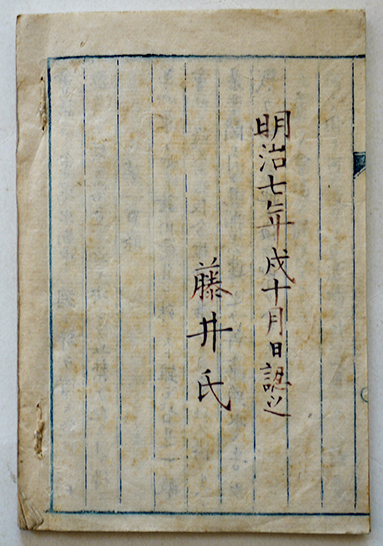 明治七年戌十月日認之
藤井氏